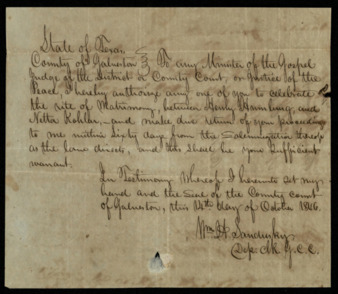 State of Texas
County of Galveston } To any Minister of the Gospel
Judge of the District or County Court, or Justice of the
Peace, I hereby authorize any one of you to celebrate
the rite of Matrimony, between Henry and
Netta Kohler, and make due return of your proceeding
to me within Sixty days from the Solemnization thereof
as the law directs, and this shall be your Sufficient
warrant.
In Testimony Whereof I hereunto set my
hand and the Seal of the County Court
of Galveston, this day of October 1846.
Wm H. Sandusky
Dep. Clk. G.C.C.